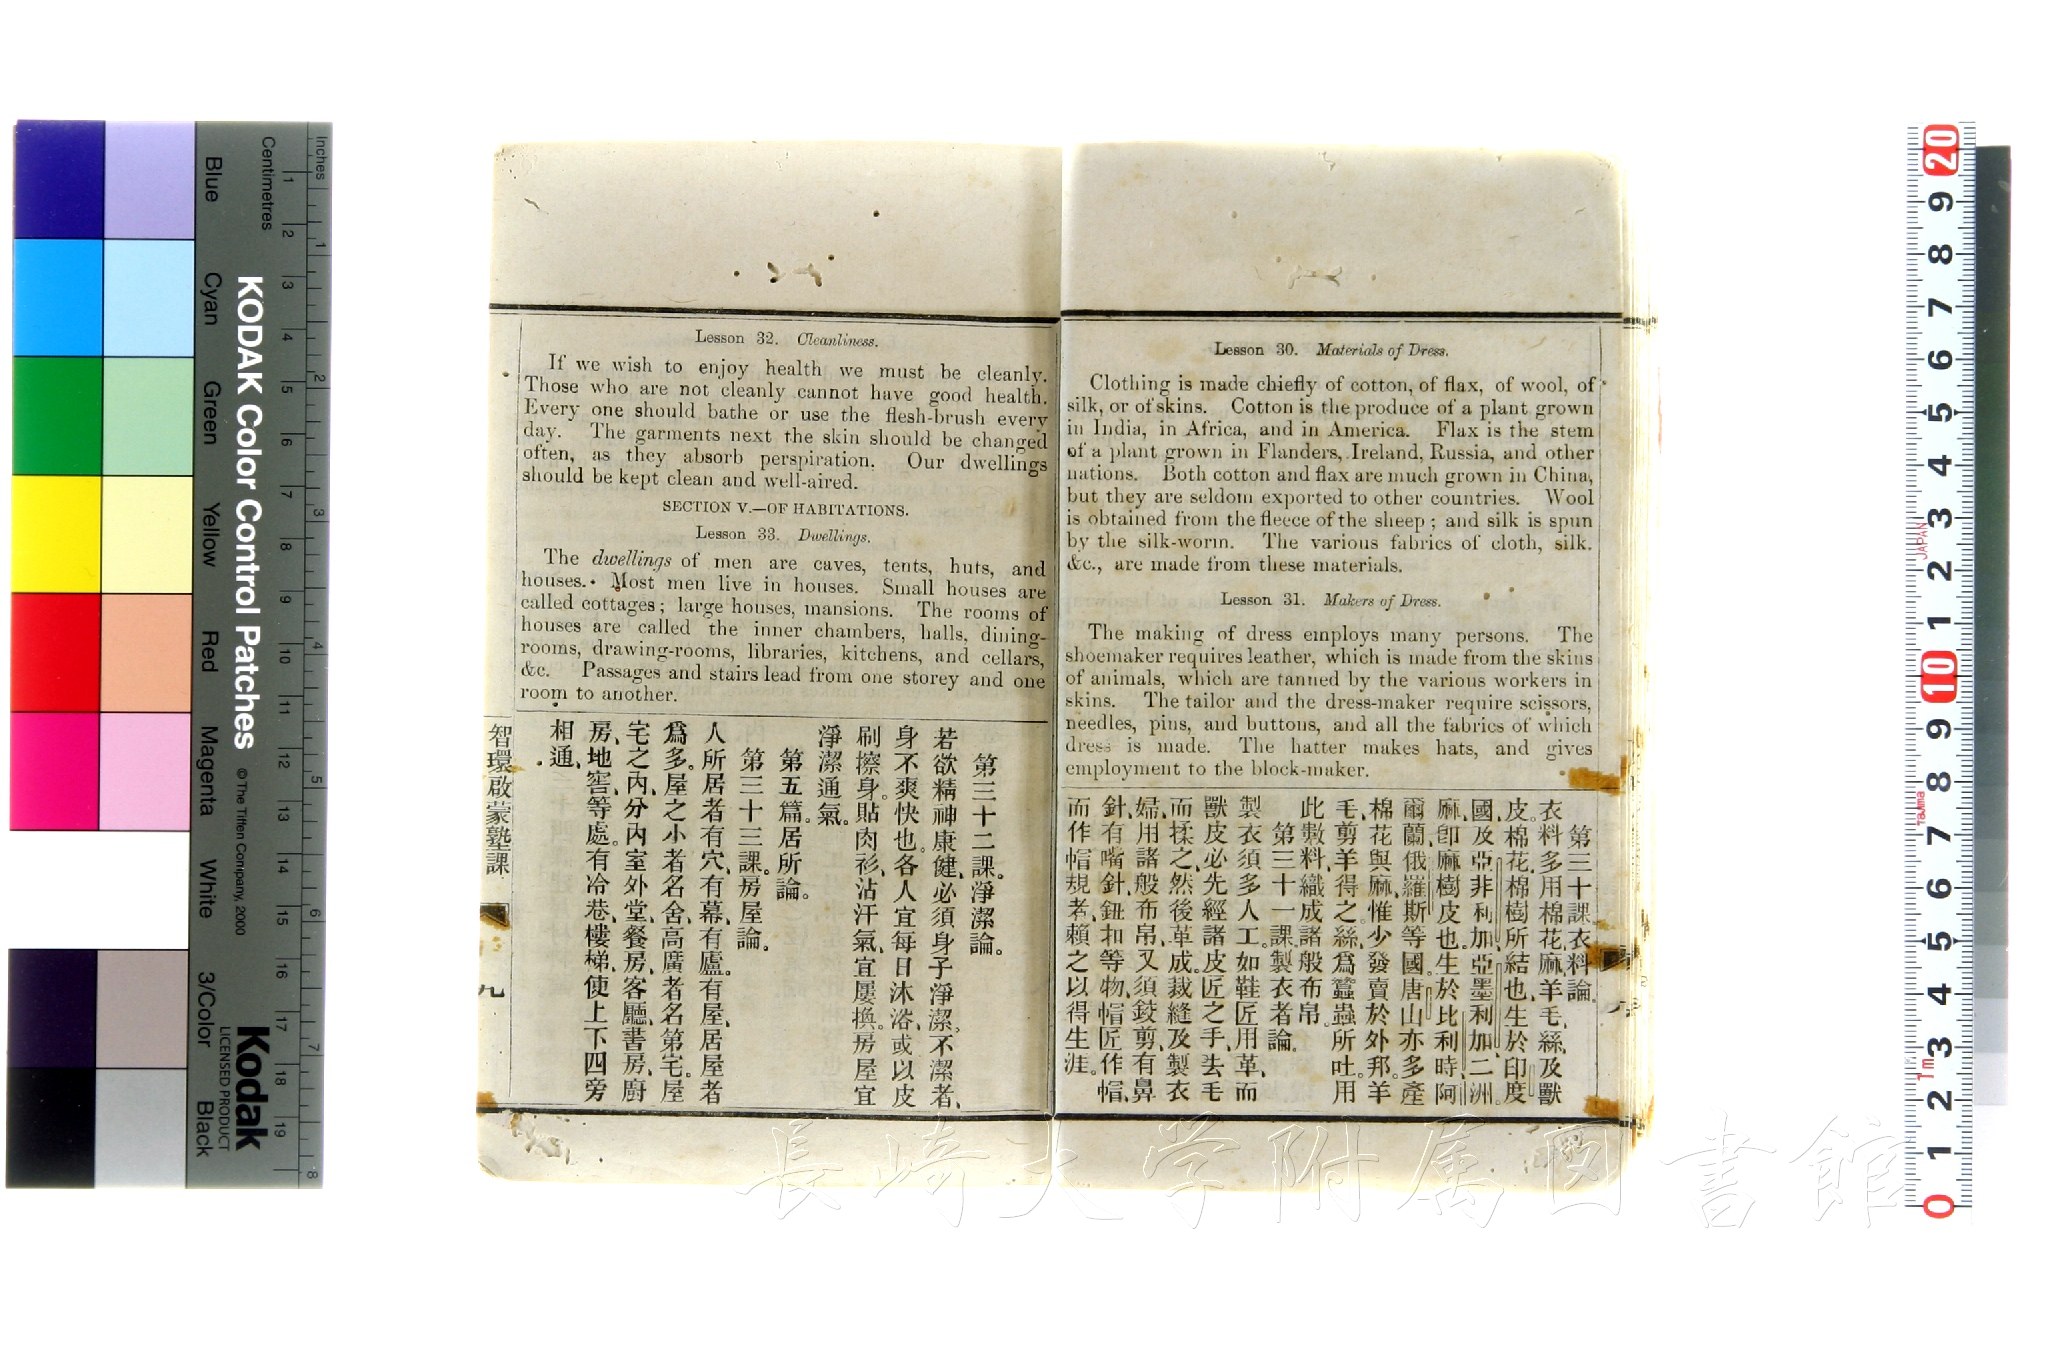 Lesson 30. Materials of Dress.
Clothing is made chiefly of cotton, of flax, of wool, of
silk, or of skins. Cotton is the produce of a plant grown
in India, in Africa, and in America. Flax is the stem
of a plant grown in Flanders, Ireland, Russia, and other
nations. Both cotton and flax are much grown in China,
but they are seldom exported to other countries. Wool
is obtained from the fleece of the sheep; and silk is spun
by the silk-worm. The various fabrics of cloth, silk.
&c., are made from these materials.
Lesson 31. Makers of Dress.
The making of dress employs many persons. The
shoemaker requires leather, which is made from the skins
of animals, which are tanned by the various workers in
skins. The tailor and the dress-maker require scissors,
needles, pins, and buttons, and all the fabrics of which
dress is made. The hatter makes hats, and gives
employment to the block-maker.
第三十課。衣料論。
衣料多用棉花、麻、羊毛、絲、及獸
皮。棉花、棉樹所結也、生於印度
國、及亞非利加、亞墨利加、二洲。
麻、卽麻樹皮也。生於比利時、阿
爾蘭、俄羅斯等國。唐山亦多產
棉花與麻、惟少發賣於外邦。羊
毛、剪羊得之。絲、爲蠶蟲所吐。用
此數料、織成諸般布帛。
第三十一課。製衣者論。
製衣須多人工。如鞋匠用革、而
獸皮必先經諸皮匠之手、去毛
而揉之、然後革成。裁縫及製衣
婦、用諸般布帛、又須鉸剪、有鼻
針、有嘴針、鈕扣等物、帽匠作帽、
而作帽規者、賴之以得生涯。
Lesson 32. Cleanliness.
If we wish to enjoy health we must be cleanly.
Those who are not cleanly cannot have good health.
Every one should bathe or use the flesh-brush every
day. The garments next the skin should be changed
often, as they absorb perspiration. Our dwellings
should be kept clean and well-aired.
SECTION V.—OF HABITATIONS.
Lesson 33. Dwellings.
The dwellings of men are caves, tents, huts, and
houses. Most men live in houses. Small houses are
called cottages; large houses, mansions. The rooms of
houses are called the inner chambers, halls, dining-
rooms, drawing-rooms, libraries, kitchens, and cellars,
&c. Passages and stairs lead from one storey and one
room to another.
第三十二課。淨潔論。
若欲精神康健、必須身子淨潔。不潔者、
身不爽快也。各人宜每日沐浴、或以皮
刷擦身。貼肉衫、沾汗氣、宜屢換。房屋宜
淨潔通氣。
第五篇。居所論。
第三十三課。房屋論。
人所居者有穴、有幕、有廬。有屋、居屋者
爲多。屋之小者名舍、高廣者名第宅。屋
宅之內、分內室外堂、餐房、客廳、書房、廚
房、地窖、等處。有冷巷、樓梯、使上下四旁
相通、
智環啟蒙塾課
九
KODAK Color Control Patches
© The Tiffen Company, 2000
Kodak
LICENSED PRODUCT
Inches
Centimetres
Blue
Cyan
Green
Yellow
Red
Magenta
White
3/Color
Black
1 2 3 4 5 6 7 8 9 10 11 12 13 14 15 16 17 18 19
1 2 3 4 5 6 7 8
20
9
8
7
6
5
4
3
2
1
10
9
8
7
6
5
4
3
2
1
0
JAPAN
TaJima
1m
長崎大学附属図書館